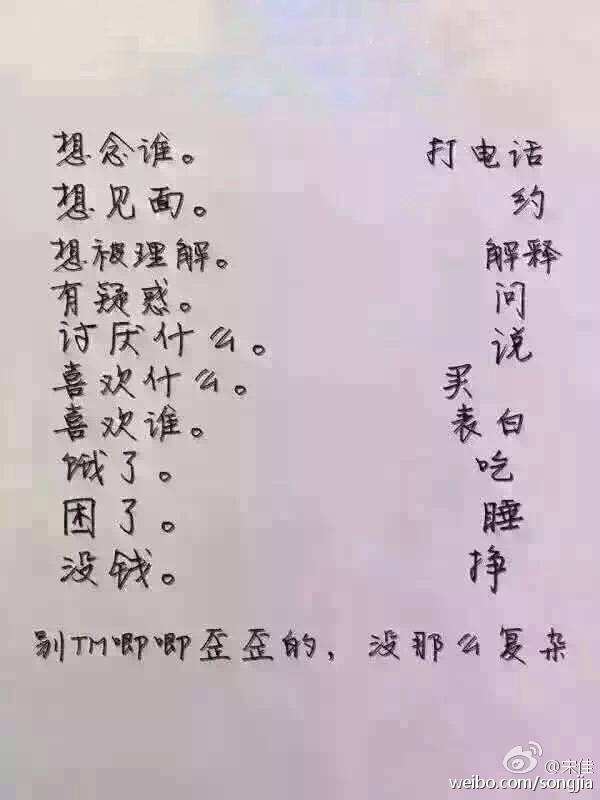 想念谁。 打电话
想见面。 约
想被理解。 解释
有疑惑。 问
讨厌什么。 说
喜欢什么。 买
喜欢谁。 表白
饿了。 吃
困了。 睡
没钱。 挣
别TM唧唧歪歪的，没那么复杂
@宋佳
weibo.com/songjia